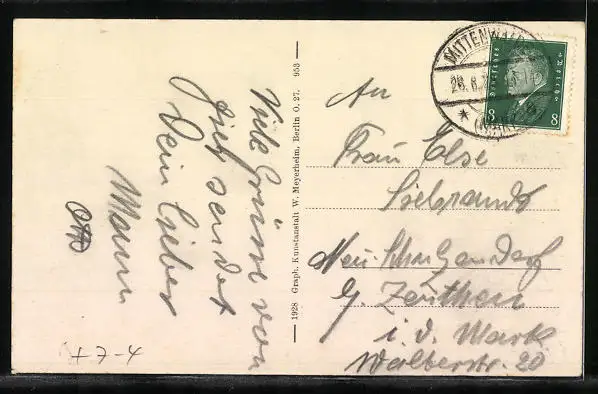 Viele Grüsse von
hier sendet
Dein Lieber
Mann
Otto
+ 7-4
1928 Graph. Kunstanstalt W. Meyerheim, Berlin O. 27. 953
MITTENWALDE
26.8.
(MARK)
Deutsches Reich
8 8
An
Frau Else
Siebrandt
Neu
by Zeuthen
i. d. Mark
Walberstr. 20